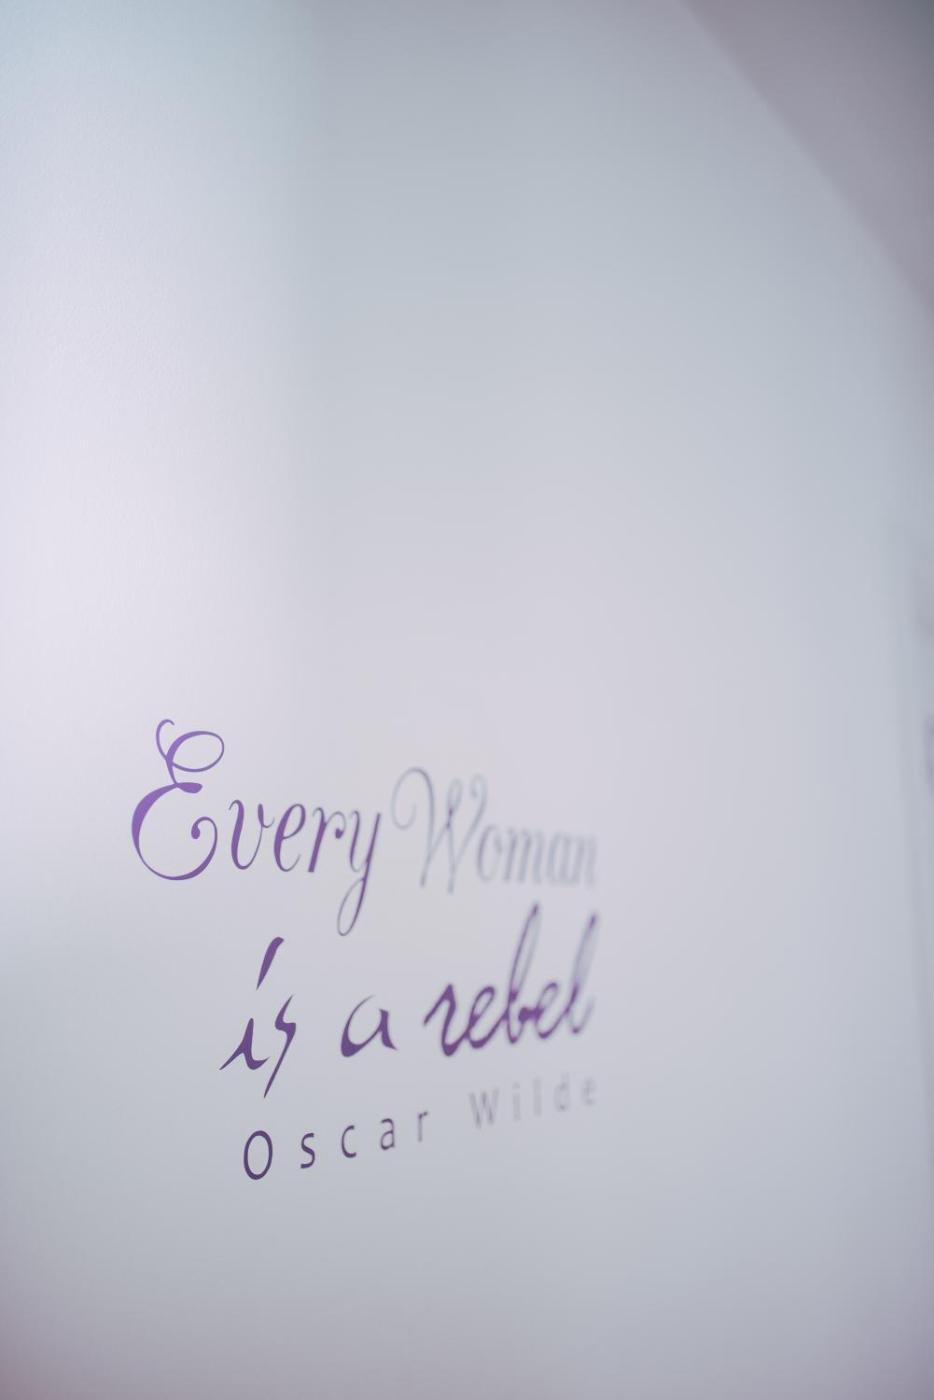 Every Woman
is a rebel
Oscar Wilde